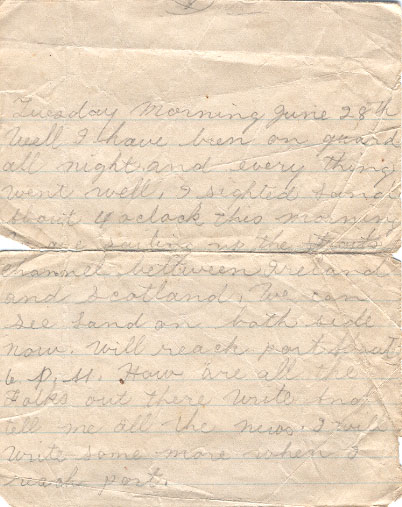 Tuesday Morning June 28th
Well I have been on guard
all night and every thing
went well, I sighted Land
about 4 oclock this morning
are sailing up the straits
channel between Ireland
and Scotland, We can
see Land on both side
now. Will reach port about
6 P.M. How are all the
Folks out there Write and
tell me all the news. I will
write some more when I
reach port.